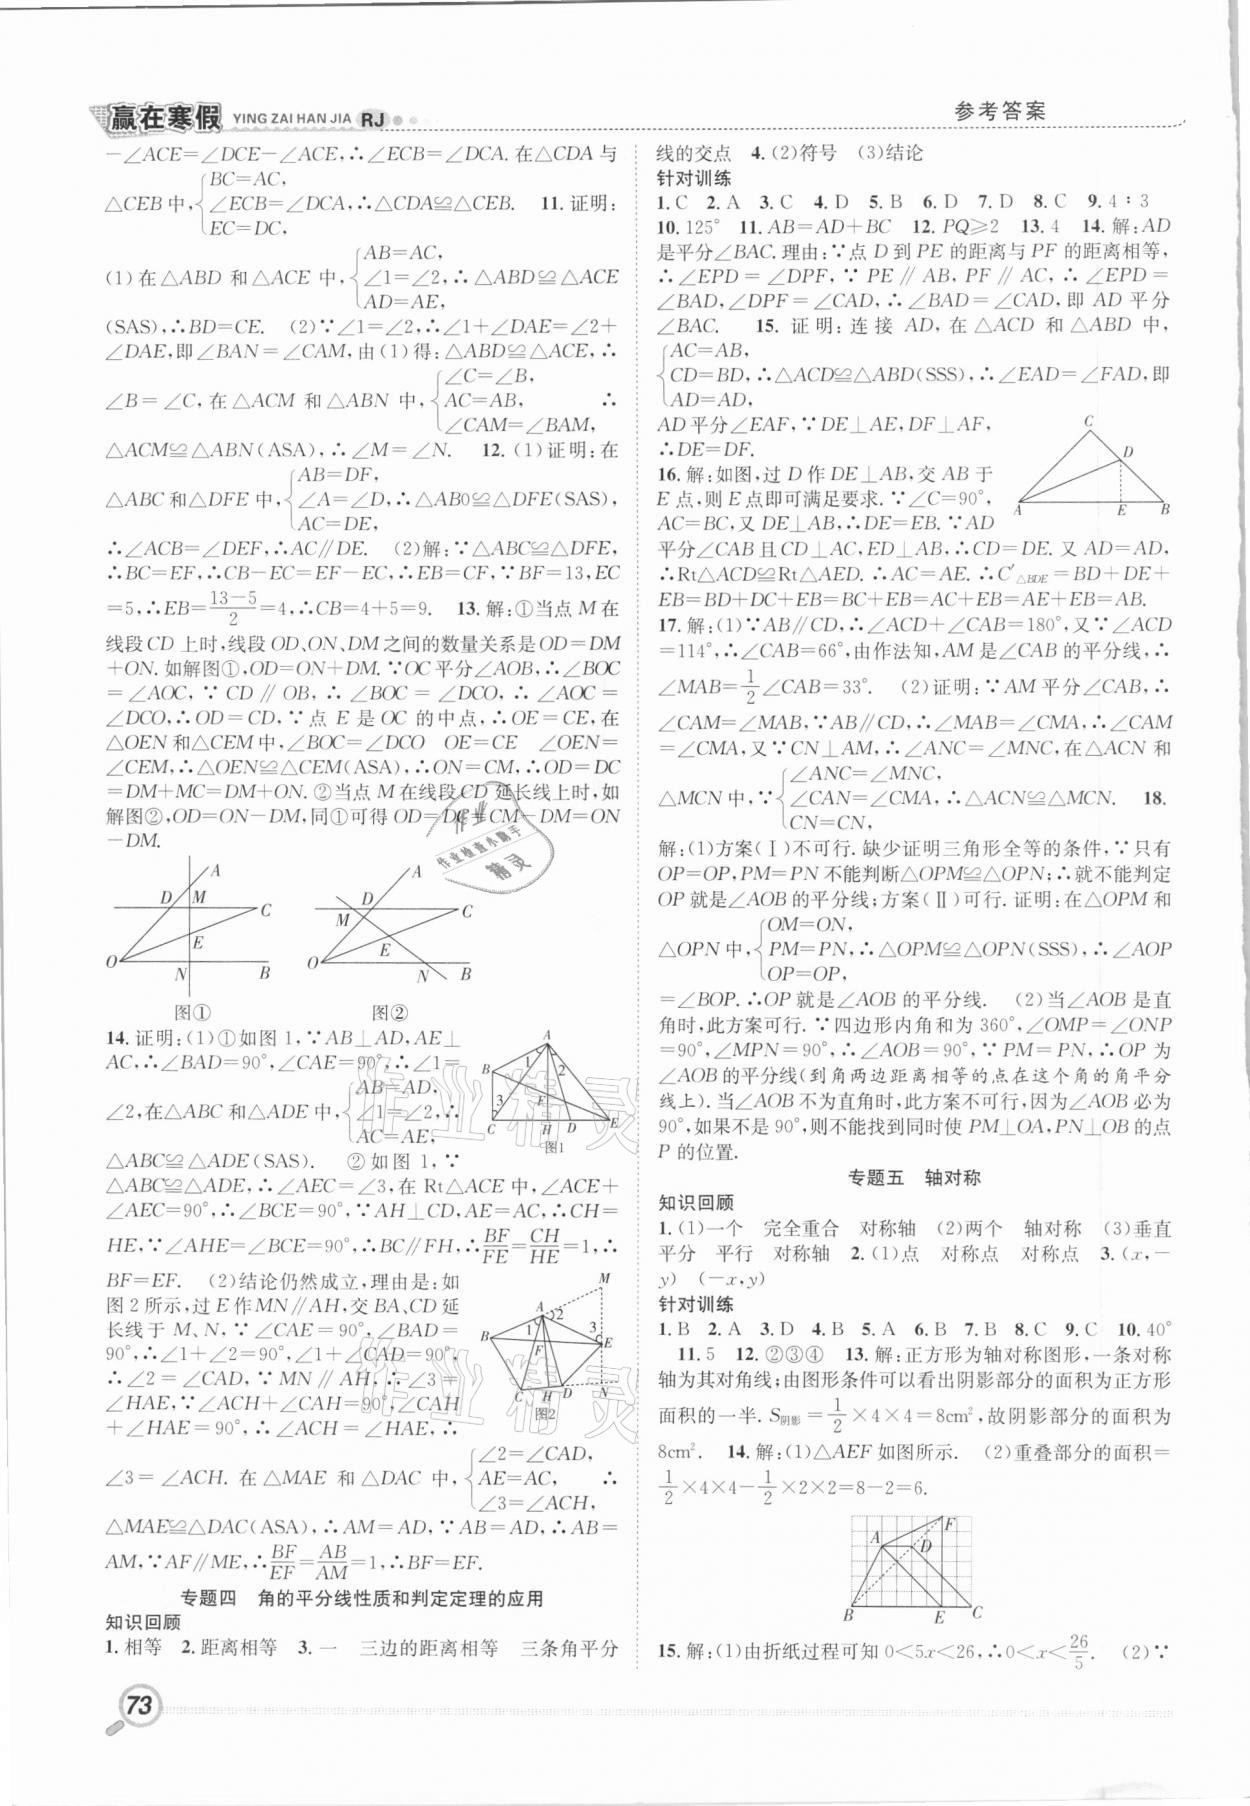 赢在寒假 YING ZAI HAN JIA RJ
参考答案
－∠ACE=∠DCE－∠ACE,∴∠ECB=∠DCA.在△CDA与
BC=AC,
△CEB中,∠ECB=∠DCA,∴△CDA≌△CEB. 11.证明:
EC=DC,
AB=AC,
(1)在△ABD和△ACE中,∠1=∠2,∴△ABD≌△ACE
AD=AE,
(SAS),∴BD=CE. (2)∵∠1=∠2,∴∠1+∠DAE=∠2+
∠DAE,即∠BAN=∠CAM,由(1)得:△ABD≌△ACE,∴
∠C=∠B,
∠B=∠C,在△ACM和△ABN中,AC=AB, ∴
∠CAM=∠BAM,
△ACM≌△ABN(ASA),∴∠M=∠N. 12.(1)证明:在
AB=DF,
△ABC和△DFE中,∠A=∠D,∴△AB0≌△DFE(SAS),
AC=DE,
∴∠ACB=∠DEF,∴AC∥DE. (2)解:∵△ABC≌△DFE,
∴BC=EF,∴CB－EC=EF－EC,∴EB=CF,∵BF=13,EC
=5,∴EB=(13－5)/2=4,∴CB=4+5=9. 13.解:①当点M在
线段CD上时,线段OD、ON、DM之间的数量关系是OD=DM
+ON.如解图①,OD=ON+DM.∵OC平分∠AOB,∴∠BOC
=∠AOC,∵CD∥OB,∴∠BOC=∠DCO,∴∠AOC=
∠DCO,∴OD=CD,∵点E是OC的中点,∴OE=CE,在
△OEN和△CEM中,∠BOC=∠DCO OE=CE ∠OEN=
∠CEM,∴△OEN≌△CEM(ASA),∴ON=CM,∴OD=DC
=DM+MC=DM+ON.②当点M在线段CD延长线上时,如
解图②,OD=ON－DM,同①可得OD=DC=CM－DM=ON
－DM.
A D M C E O N B
A D C M E O N B
图① 图②
14.证明:(1)①如图1,∵AB⊥AD,AE⊥
AC,∴∠BAD=90°,∠CAE=90°,∴∠1=
AB=AD,
∠2,在△ABC和△ADE中,∠1=∠2,∴
AC=AE,
A B 1 2 F 3 C H D E
图1
△ABC≌△ADE(SAS). ②如图1,∵
△ABC≌△ADE,∴∠AEC=∠3,在Rt△ACE中,∠ACE+
∠AEC=90°,∴∠BCE=90°,∵AH⊥CD,AE=AC,∴CH=
HE,∵∠AHE=∠BCE=90°,∴BC∥FH,∴BF/FE=CH/HE=1,∴
BF=EF. (2)结论仍然成立,理由是:如
图2所示,过E作MN∥AH,交BA、CD延
长线于M、N,∵∠CAE=90°,∠BAD=
90°,∴∠1+∠2=90°,∠1+∠CAD=90°,
∴∠2=∠CAD,∵MN∥AH,∴∠3=
∠HAE,∵∠ACH+∠CAH=90°,∠CAH
+∠HAE=90°,∴∠ACH=∠HAE,∴
M A 2 1 3 B F E C H D N
图2
∠2=∠CAD,
∠3=∠ACH.在△MAE和△DAC中,AE=AC, ∴
∠3=∠ACH,
△MAE≌△DAC(ASA),∴AM=AD,∵AB=AD,∴AB=
AM,∵AF∥ME,∴BF/EF=AB/AM=1,∴BF=EF.
专题四 角的平分线性质和判定定理的应用
知识回顾
1.相等 2.距离相等 3.一 三边的距离相等 三条角平分
73
线的交点 4.(2)符号 (3)结论
针对训练
1.C 2.A 3.C 4.D 5.B 6.D 7.D 8.C 9.4∶3
10.125° 11.AB=AD+BC 12.PQ≥2 13.4 14.解:AD
是平分∠BAC.理由:∵点D到PE的距离与PF的距离相等,
∴∠EPD=∠DPF,∵PE∥AB,PF∥AC,∴∠EPD=
∠BAD,∠DPF=∠CAD,∴∠BAD=∠CAD,即AD平分
∠BAC. 15.证明:连接AD,在△ACD和△ABD中,
AC=AB,
CD=BD,∴△ACD≌△ABD(SSS),∴∠EAD=∠FAD,即
AD=AD,
AD平分∠EAF,∵DE⊥AE,DF⊥AF,
∴DE=DF.
16.解:如图,过D作DE⊥AB,交AB于
E点,则E点即可满足要求.∵∠C=90°,
AC=BC,又DE⊥AB,∴DE=EB.∵AD
C D A E B
平分∠CAB且CD⊥AC,ED⊥AB,∴CD=DE.又AD=AD,
∴Rt△ACD≌Rt△AED.∴AC=AE.∴C′△BDE=BD+DE+
EB=BD+DC+EB=BC+EB=AC+EB=AE+EB=AB.
17.解:(1)∵AB∥CD,∴∠ACD+∠CAB=180°,又∵∠ACD
=114°,∴∠CAB=66°,由作法知,AM是∠CAB的平分线,∴
∠MAB=1/2∠CAB=33°. (2)证明:∵AM平分∠CAB,∴
∠CAM=∠MAB,∵AB∥CD,∴∠MAB=∠CMA,∴∠CAM
=∠CMA,又∵CN⊥AM,∴∠ANC=∠MNC,在△ACN和
∠ANC=∠MNC,
△MCN中,∵∠CAN=∠CMA,∴△ACN≌△MCN. 18.
CN=CN,
解:(1)方案(Ⅰ)不可行.缺少证明三角形全等的条件,∵只有
OP=OP,PM=PN不能判断△OPM≌△OPN;∴就不能判定
OP就是∠AOB的平分线;方案(Ⅱ)可行.证明:在△OPM和
OM=ON,
△OPN中,PM=PN,∴△OPM≌△OPN(SSS),∴∠AOP
OP=OP,
=∠BOP.∴OP就是∠AOB的平分线. (2)当∠AOB是直
角时,此方案可行.∵四边形内角和为360°,∠OMP=∠ONP
=90°,∠MPN=90°,∴∠AOB=90°,∵PM=PN,∴OP为
∠AOB的平分线(到角两边距离相等的点在这个角的角平分
线上).当∠AOB不为直角时,此方案不可行,因为∠AOB必为
90°,如果不是90°,则不能找到同时使PM⊥OA,PN⊥OB的点
P的位置.
专题五 轴对称
知识回顾
1.(1)一个 完全重合 对称轴 (2)两个 轴对称 (3)垂直
平分 平行 对称轴 2.(1)点 对称点 对称点 3.(x,－
y) (－x,y)
针对训练
1.B 2.A 3.D 4.B 5.A 6.B 7.B 8.C 9.C 10.40°
11.5 12.②③④ 13.解:正方形为轴对称图形,一条对称
轴为其对角线;由图形条件可以看出阴影部分的面积为正方形
面积的一半.S阴影=1/2×4×4=8cm²,故阴影部分的面积为
8cm². 14.解:(1)△AEF如图所示. (2)重叠部分的面积=
1/2×4×4－1/2×2×2=8－2=6.
F A D B E C
15.解:(1)由折纸过程可知0<5x<26,∴0<x<26/5. (2)∵
作业检查小助手
精灵
作业精灵
作业精灵